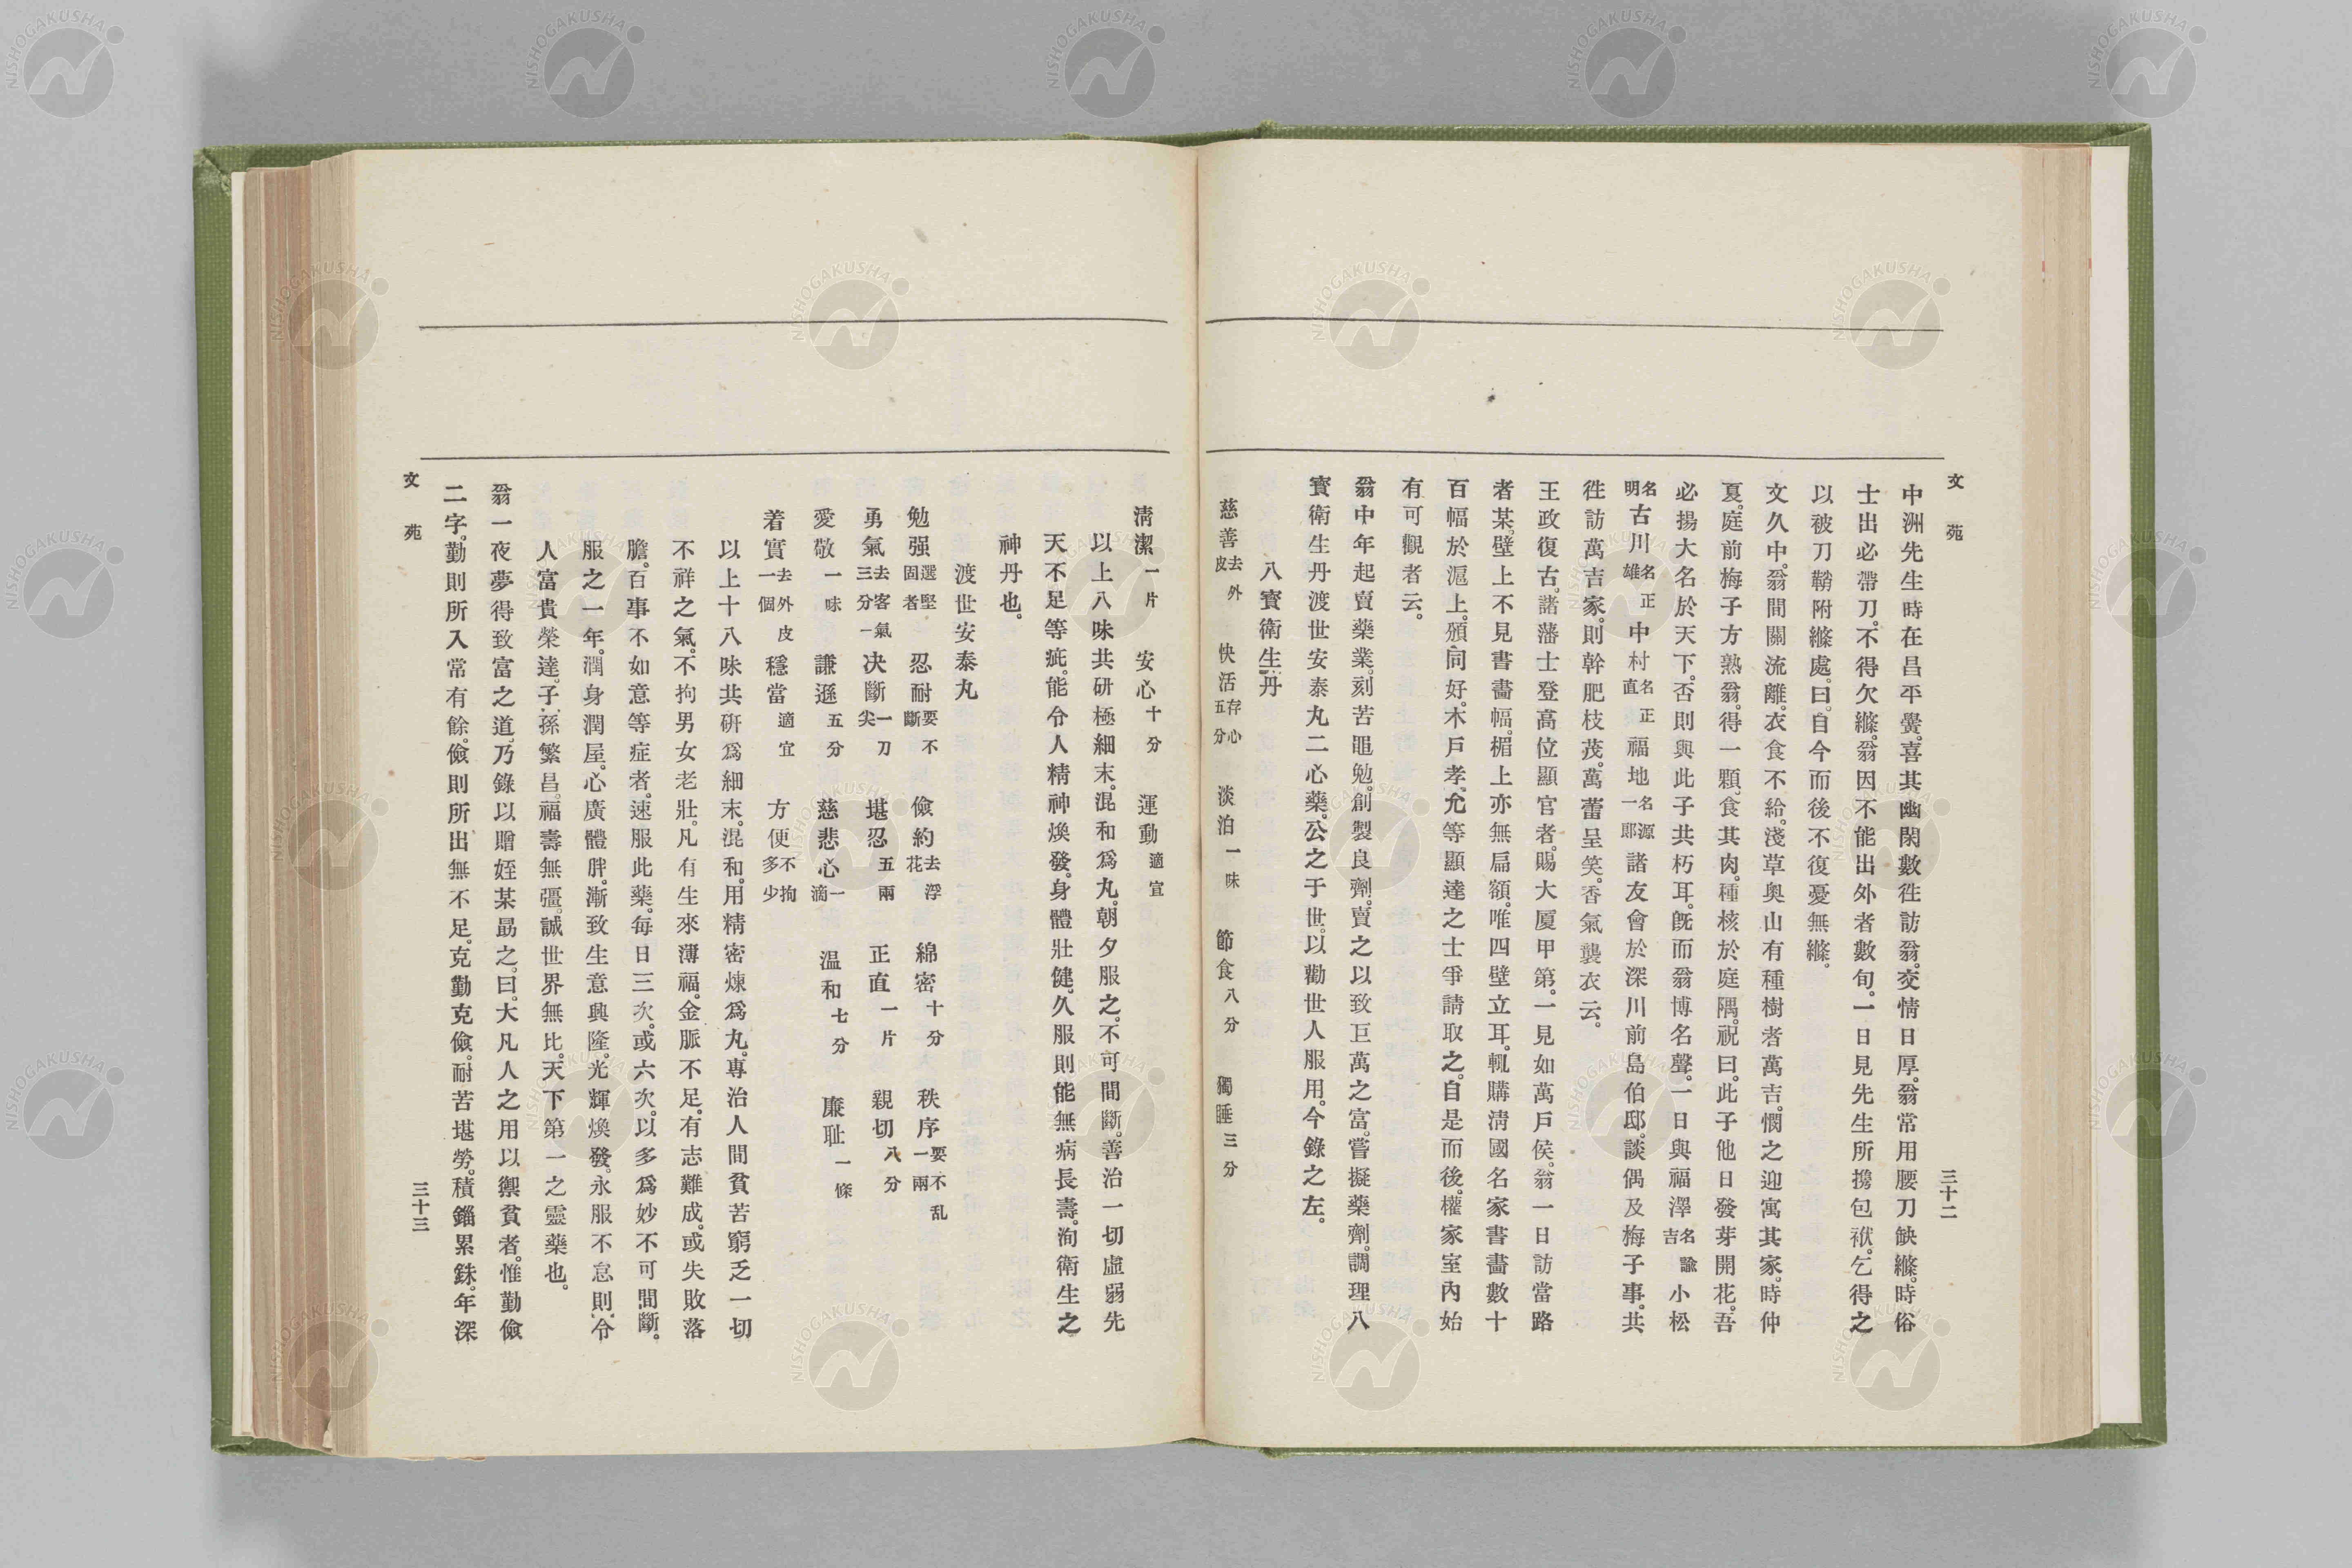 文苑
三十二
中洲先生時在昌平黌。喜其幽閑數徃訪翁。交情日厚。翁常用腰刀缺縧。時俗
士出必帶刀。不得欠縧。翁因不能出外者數旬。一日見先生所携包袱。乞得之
以被刀鞘附縧處。曰。自今而後不復憂無縧。
文久中。翁間關流離。衣食不給。淺草奧山有種樹者萬吉。憫之迎寓其家。時仲
夏。庭前梅子方熟。翁。得一顆。食其肉。種核於庭隅。祝曰。此子他日發芽開花。吾
必揚大名於天下。否則與此子共朽耳。旣而翁博名聲。一日與福澤名諭吉小松
名明古川名正雄中村名正直福地名源一郎諸友會於深川前島伯邸。談偶及梅子事。共
徃訪萬吉家。則幹肥枝茂。萬蕾呈笑。香氣襲衣云。
王政復古。諸藩士登高位顯官者。賜大厦甲第。一見如萬戶侯。翁一日訪當路
者某。壁上不見書畵幅。楣上亦無扁額。唯四壁立耳。輒購淸國名家書畵數十
百幅於滬上。頒同好。木戶孝允等顯達之士爭請取之。自是而後。權家室內始
有可觀者云。
翁中年起賣藥業。刻苦黽勉。創製良劑。賣之以致巨萬之富。嘗擬藥劑。調理八
寳衛生丹渡世安泰丸二心藥。公之于世。以勸世人服用。今錄之左。
八寳衛生丹
慈善去外皮　快活存心五分　淡泊一味　節食八分　獨睡三分
淸潔一片　安心十分　運動適宜
以上八味共研極細末。混和爲丸。朝夕服之。不可間斷。善治一切虛弱先
天不足等疵。能令人精神煥發。身體壯健。久服則能無病長壽。洵衛生之
神丹也。
渡世安泰丸
勉强選堅固者　忍耐要不斷　儉約去浮花　綿密十分　秩序要不乱一兩
勇氣去客氣三分一　决斷一刀尖　堪忍五兩　正直一片　親切八分
愛敬一味　謙遜五分　慈悲心一滴　温和七分　廉耻一條
着實去外皮一個　穩當適宜　方便不拘多少
以上十八味共硏爲細末。混和。用精密煉爲丸。專治人間貧苦窮乏一切
不祥之氣。不拘男女老壯。凡有生來薄福。金脈不足。有志難成。或失敗落
膽。百事不如意等症者。速服此藥。每日三次。或六次。以多爲妙不可間斷。
服之一年。潤身潤屋。心廣體胖。漸致生意興隆。光輝煥發。永服不怠則。令
人富貴榮達。子孫繁昌。福壽無彊。誠世界無比。天下第一之靈藥也。
翁一夜夢得致富之道。乃錄以贈姪某勗之。曰。大凡人之用以禦貧者。惟勤儉
二字。勤則所入常有餘。儉則所出無不足。克勤克儉。耐苦堪勞。積錙累銖。年深
文苑
三十三